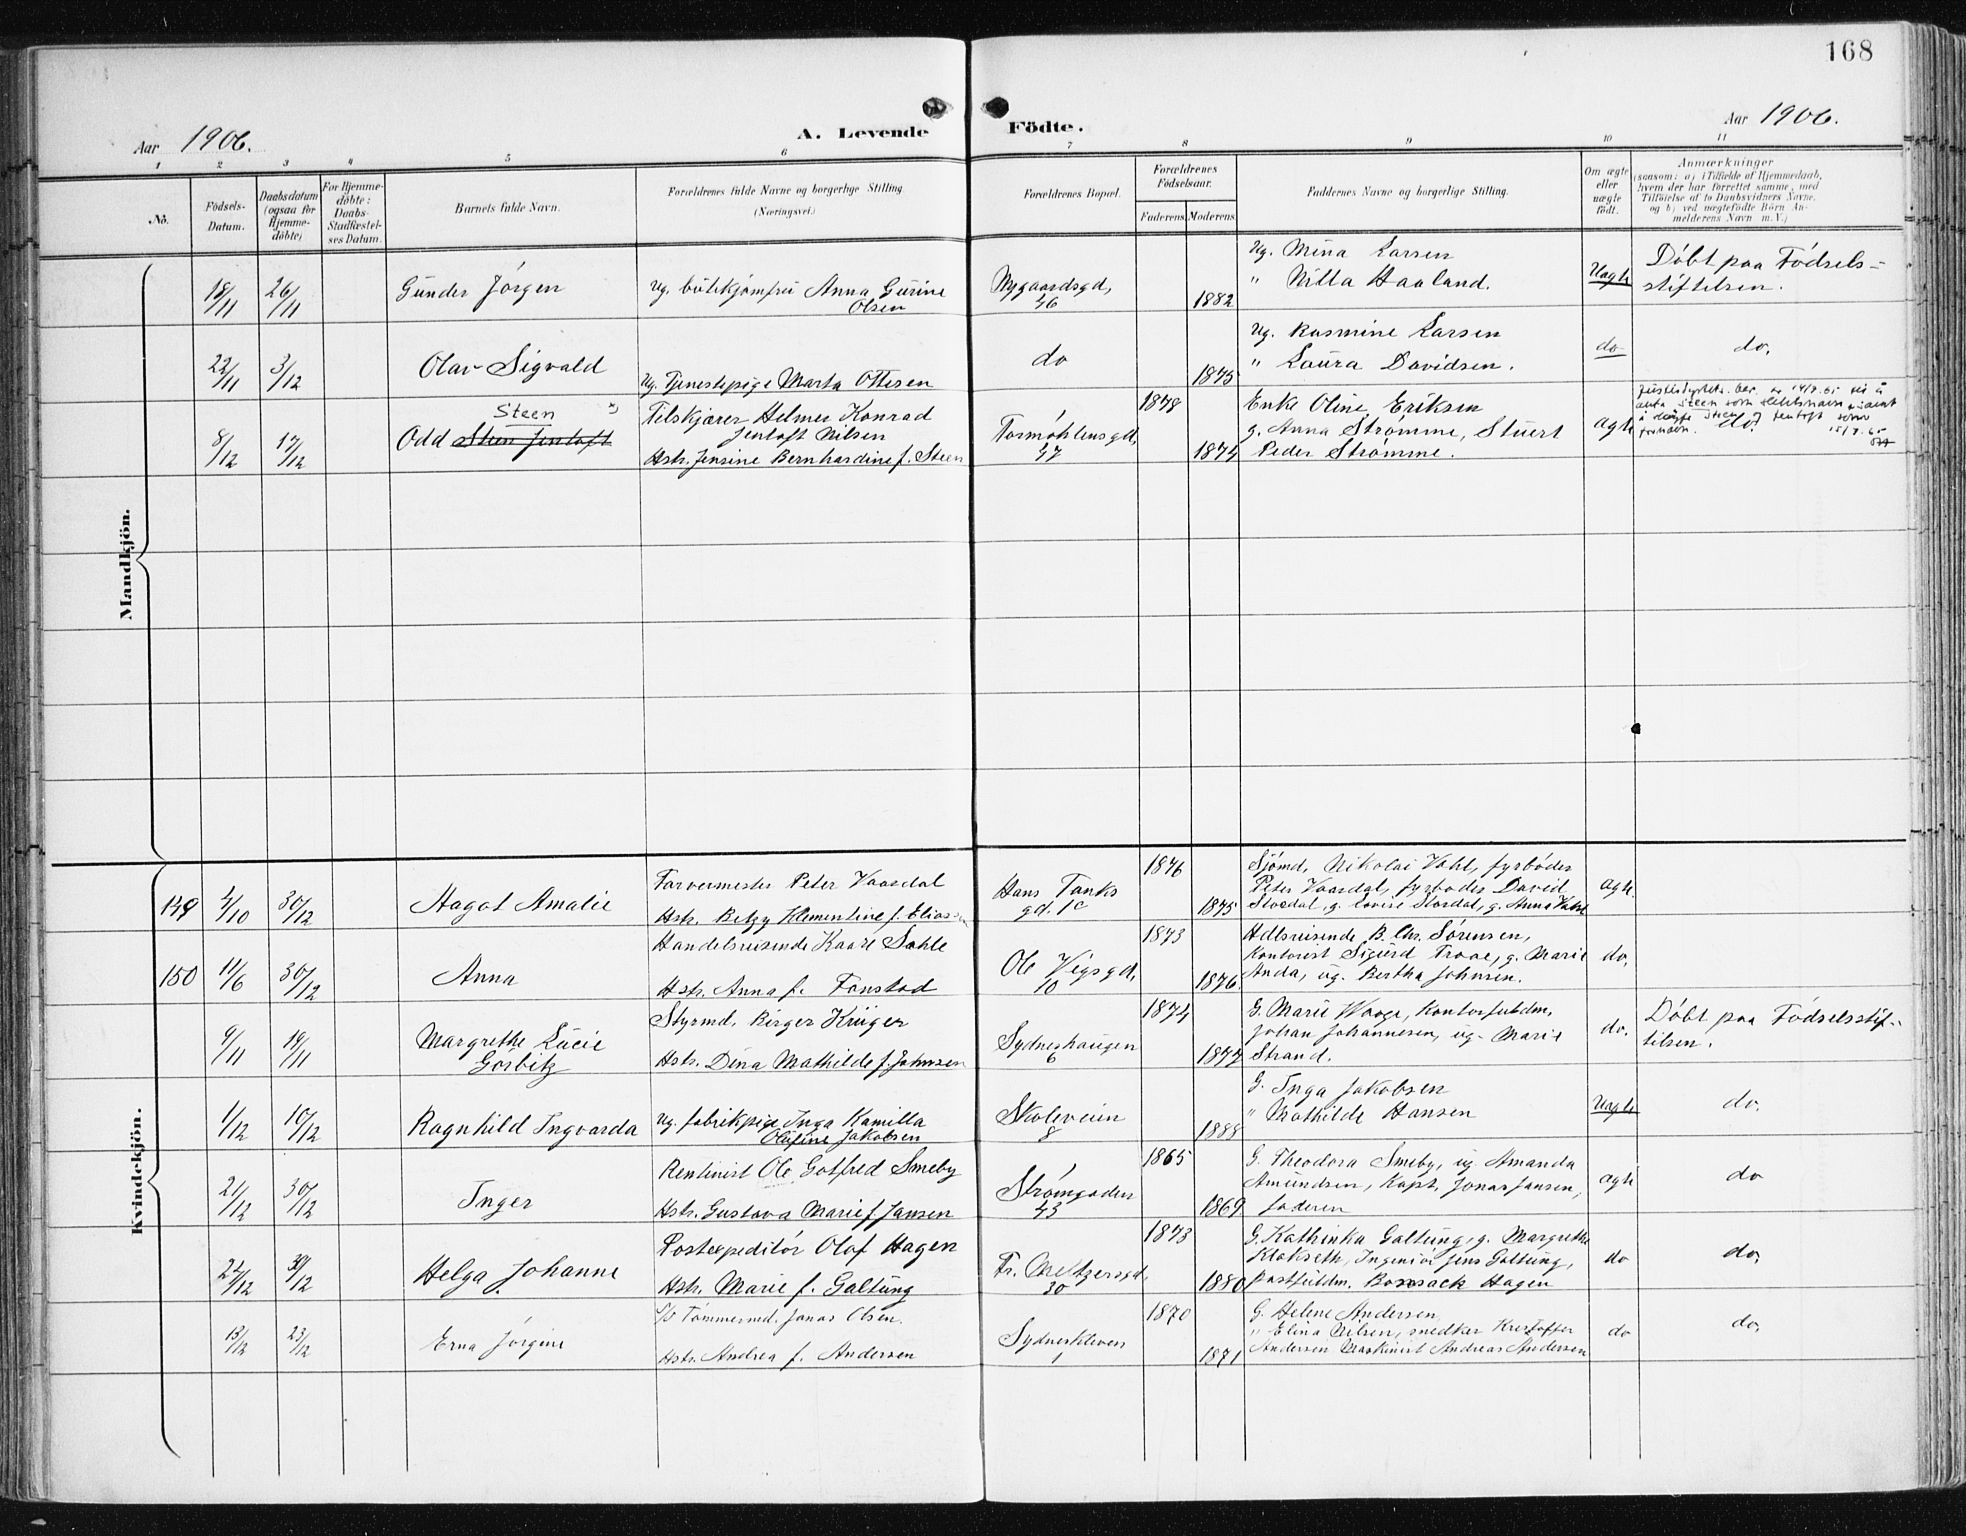 168
Aar 1906.
A. Levende Födte.
Aar 1906.
1 2 3 4 5 6 7 8 9 10 11
No.
Födsels-
Datum.
Daabsdatum
(ogsaa for
Hjemme-
döbte)
For Hjemme-
döbte:
Daabs-
Stadfæstel-
ses Datum.
Barnets fulde Navn.
Forældrenes fulde Navne og borgerlige Stilling
(Næringsvei.)
Forældrenes Bopæl.
Forældrenes
Födselsaar.
Faderens
Moderens
Faddernes Navne og borgerlige Stilling.
Om ægte
eller
uægte
födt.
Anmærkninger
(saasom: a) i Tilfælde af Hjemmedaab,
hvem der har forrettet samme, med
Tilföielse af to Daabsvidners Navne,
og b) ved uægtefödte Börn An-
melderens Navn m. V.)
Mandkjön.
18/11 26/11 Gunder Jörgen
ug. butikjomfru Anna Gurine
Olsen
Nygaardsgd,
46
1882
Ug. Mina Larsen
" Milla Haaland.
Uagte
Döbt paa Födsels-
stiftelsen.
22/11 3/12 Olav Sigvald
Ug. Tjenestepige Marta Ottesen
do
1875
Ug. Rasmine Larsen
" Laura Davidsen.
do
do.
8/12 17/12
Steen
Odd Steen Jentoft
Tilskjærer Helmer Konrad
Jentoft Nilsen
Hstr. Jensine Bernhardine f. Steen
Tormöhlensgd,
47
1878
1874
Enke Oline Eriksen
g. Anna Strømme, Stuert
Peder Strømme.
agte
do.
15/9.65
Kvindekjön.
149 4/10 30/12 Hagot Amalie
Farvermester Peter Vaardal
Hstr. Betzy Klementine f. Eliassen
Hans Tanks
gd. 1c
1876
1875
Sjömd. Nikolai Vahl, fyrböder
Peter Vaardal, fyrböder David
agte.
150 11/6 30/12 Anna
Handelsreisende Kaare Sahle
Hstr. Anna f. Fonstad
Ole Vigsgd.
10
1873
1876.
Hdlsreisende B. Chr. Sörensen,
Kontorist Sigurd Troae, g. Marie
Anda, ug. Bertha Johnsen.
do.
9/11 19/11 Margrethe Lucie
Görbitz
Styrmd. Birger Krüger
Hstr. Dina Mathilde f. Johnsen
Sydneshaugen
6
1874
1877
G. Marie Waage, Kontorfuldm,
Johan Johannesen, ug. Marie
Strand.
do.
Döbt paa Födselsstif-
telsen.
1/12 10/12 Ragnhild Ingvarda
Ug. fabrikpige Inga Kamilla
Olufine Jakobsen
Skoleveien
8
1888
G. Inga Jakobsen
" Mathilde Hansen
Uagte
do.
21/12 30/12 Inger
Rentenist Ole Gotfred Smeby
Hstr. Gustava Marie f. Jansen
Strömgaden
43
1865
1869
G. Theodora Smeby, ug. Amanda
Amundsen, Kapt. Jonas Jansen,
faderen
agte
do
22/12 30/12 Helga Johanne
Postexpeditör Olaf Hagen
Hstr. Marie f. Galtung
Fr. Meltzersgd.
30
1873
1880
G. Kathinka Galtung, g. Margrethe
Klokseth, Ingeniör Jens Galtung,
postfuldm. Bonsack Hagen
do
do.
13/12 23/12 Erna Jörgine
S/o Tömmermd. Jonas Olsen.
Hstr. Andrea f. Andersen
Sydneskleven
1
1870
1871
G. Helene Andersen
" Elina Nilsen, snedker Kristoffer
Andersen Maskinist Andreas Andersen
do
do.